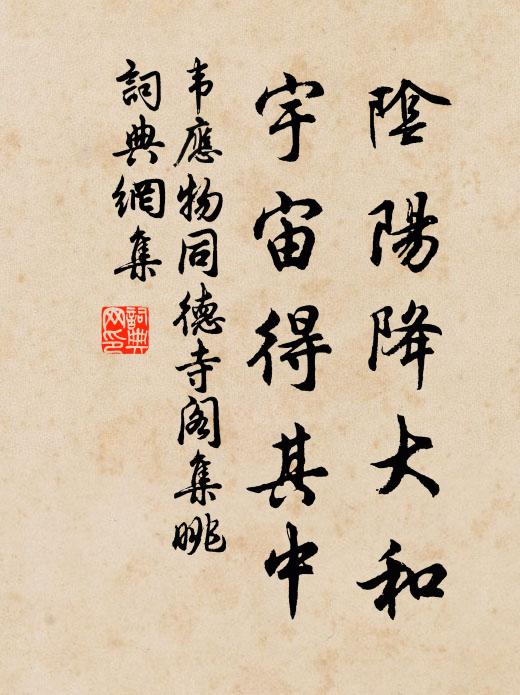 陰陽降大和
宇宙得其中
韦應物同德寺阁集眺
詞典網集
詞典网印